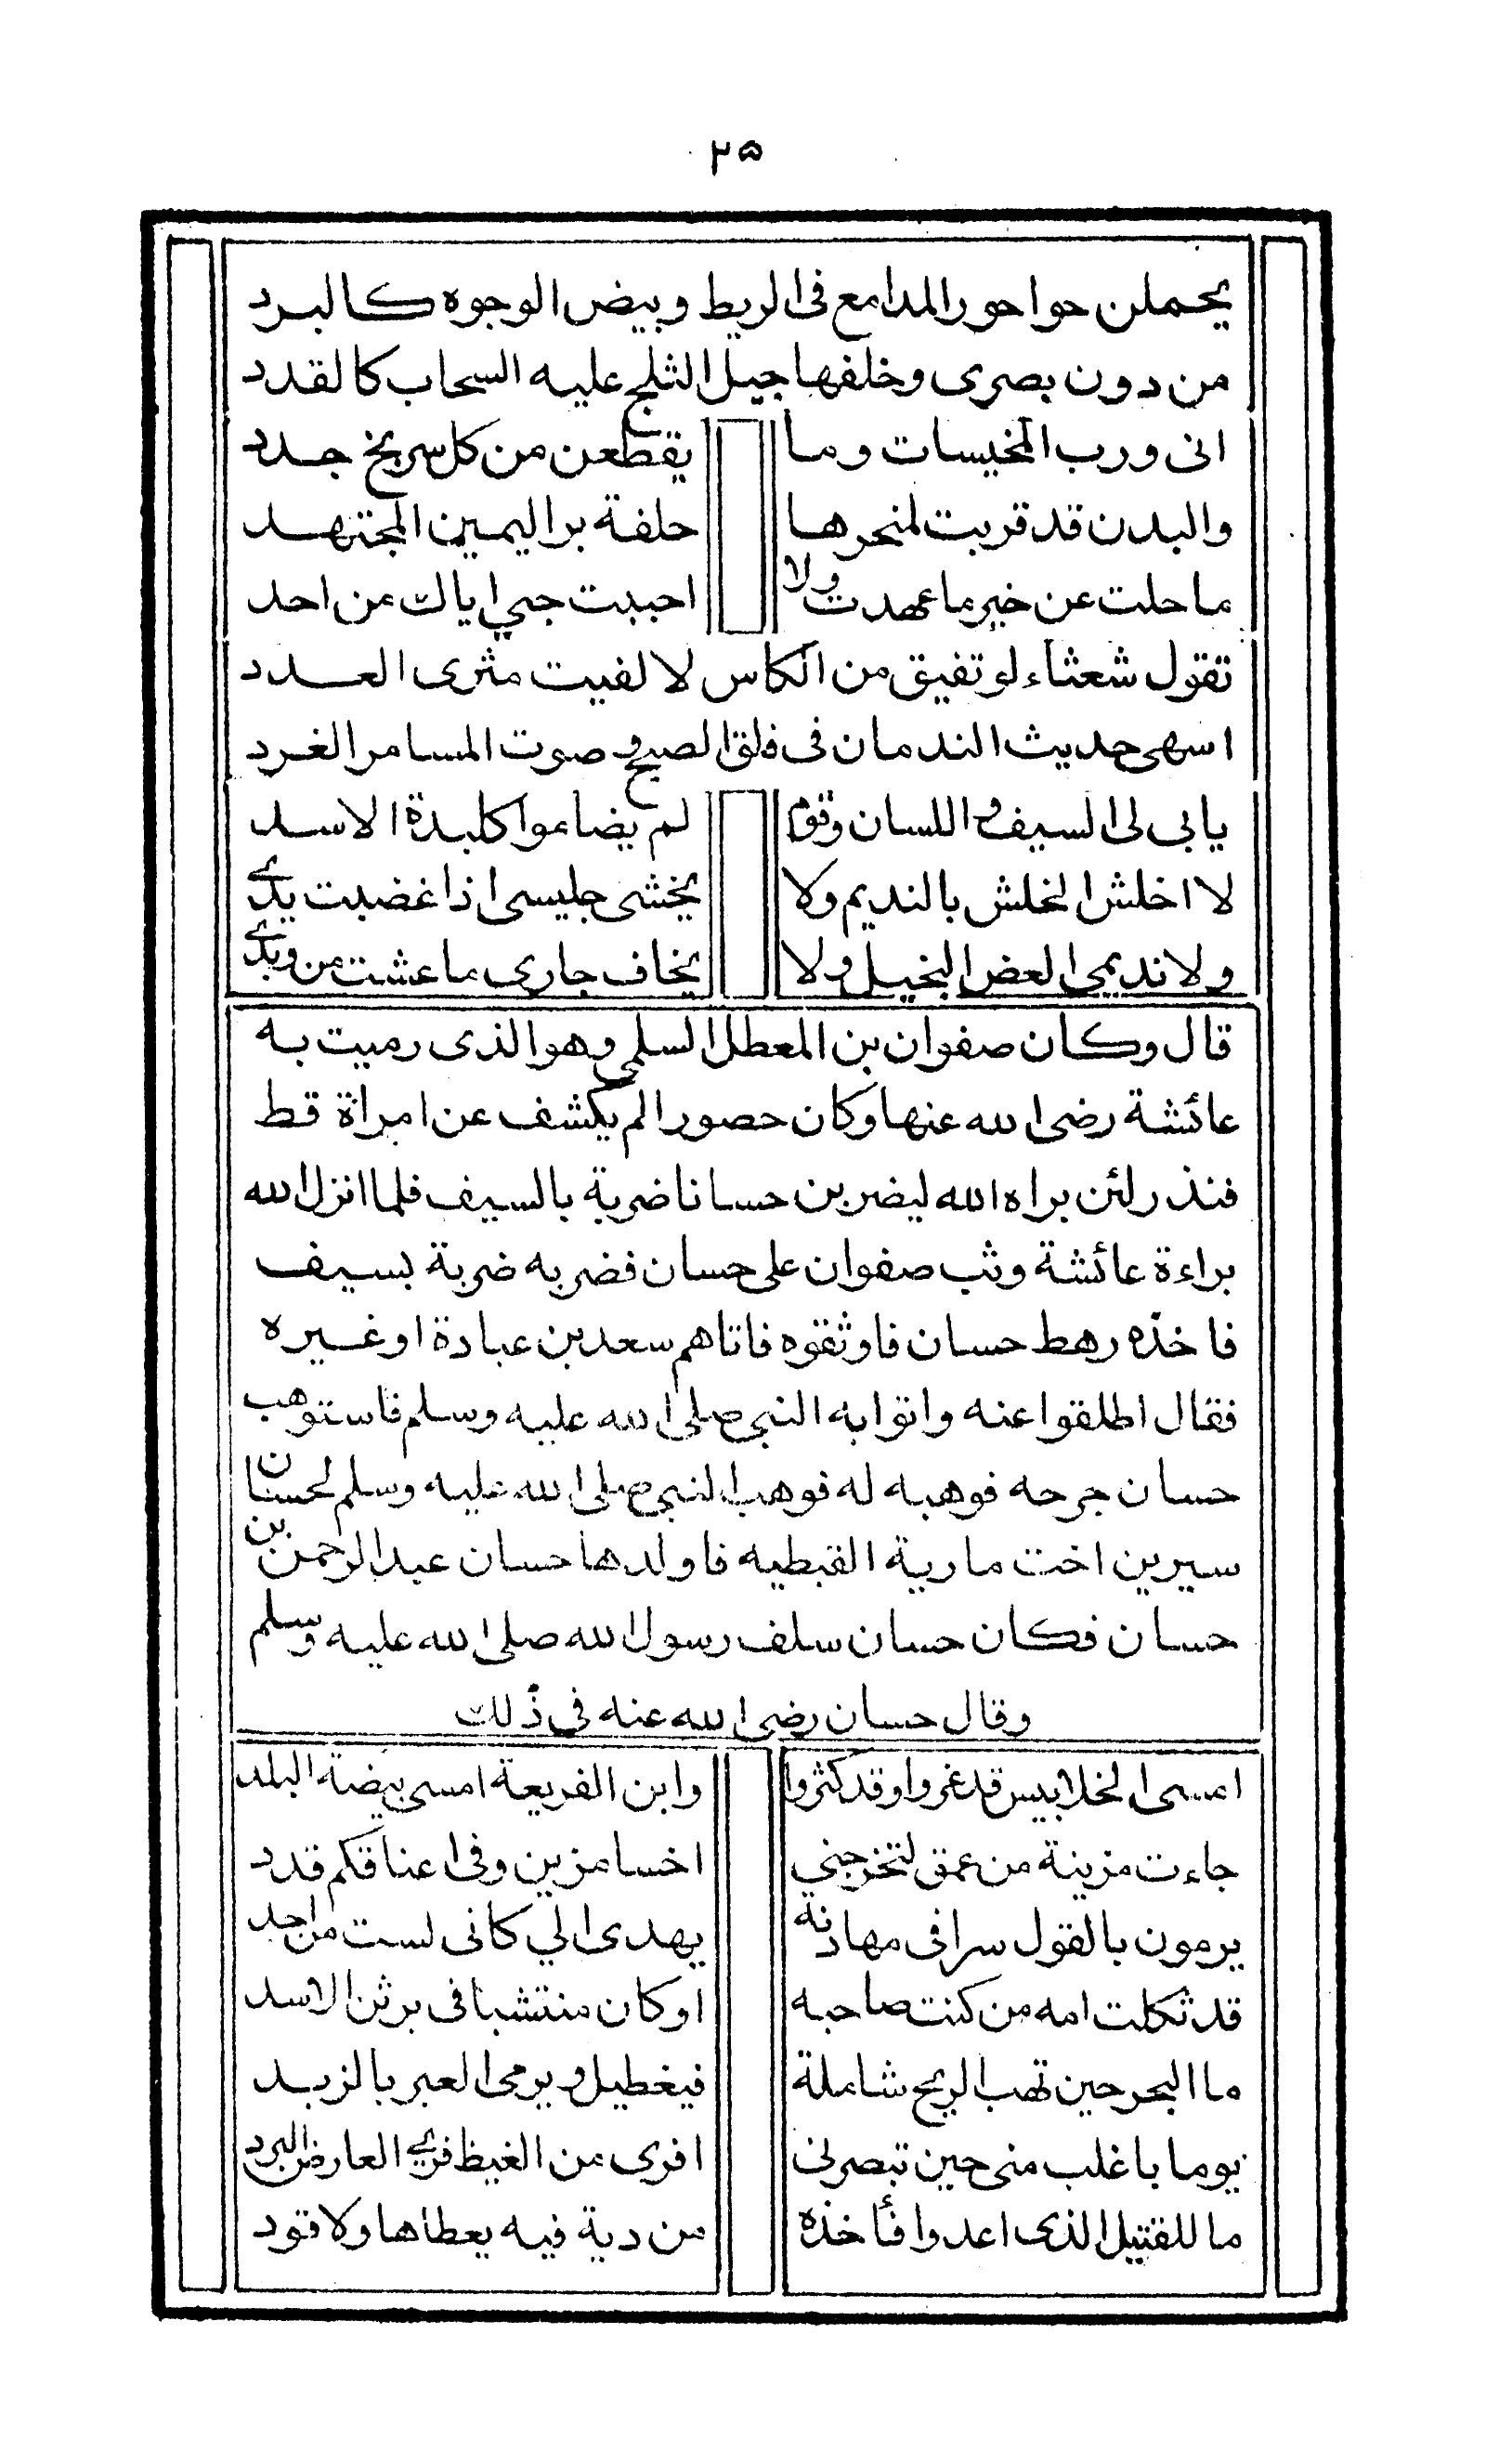 ٢٥
يحملن حوا حور المدامع فى الريط وبيض الوجوه كالبرد
من دون بصرى وخلفها جبل الثلج عليه السحاب كالقدد
انى ورب المخيسات وما يقطعن من كل سربخ جدد
والبدن قد قربت لمنحرها حلفة بر اليمين المجتهد
ما حلت عن خير ما عهدت ولا احببت حبى اياك من احد
تقول شعثاء لو تفيق من الكاس لالفيت مثرى العدد
اسهى حديث الندمان فى فلق الصبح و صوت المسامر الغرد
يابى لى السيف و اللسان وقوم لم يضاموا كلبدة الاسد
لا اخلش الخلش بالنديم ولا يخشى جليسى اذا غضبت يدى
ولا نديمى العض البخيل ولا يخاف جارى ما عشت من وبدى
قال وكان صفوان بن المعطل السلمى وهو الذى رميت به
عائشة رضى الله عنها وكان حصورا لم يكشف عن امراة قط
فنذر لئن براه الله ليضربن حسانا ضربة بالسيف فلما انزل الله
براءة عائشة وثب صفوان على حسان فضربه ضربة بسيف
فاخذه رهط حسان فاوثقوه فاتاهم سعد بن عبادة او غيره
فقال اطلقوا عنه واتوا به النبى صلى الله عليه وسلم فاستوهب
حسان جرحه فوهبه له فوهب النبى صلى الله عليه وسلم لحسان
سيرين اخت مارية القبطيه فاولدها حسان عبد الرحمن بن
حسان فكان حسان سلف رسول الله صلى الله عليه وسلم
وقال حسان رضى الله عنه فى ذلك
امسى الخلابيس قد غروا وقد كثروا وابن الفريعة امسى بيضة البلد
جاءت مزينة من عمق لتخرجنى اخسا مزين وفى اعناقكم قدد
يرمون بالقول سرا فى مهادنة يهدى الي كانى لست من احد
قد ثكلت امه من كنت صاحبه او كان منتشبا فى برثن الاسد
ما البحر حين تهب الريح شاملة فيغطيل و يرمى العبر بالزبد
يوما باغلب منى حين تبصرنى افرى من الغيظ فرى العارض البرد
ما للقتيل الذى اعدوا فأخذه من دية فيه يعطاها ولا قود